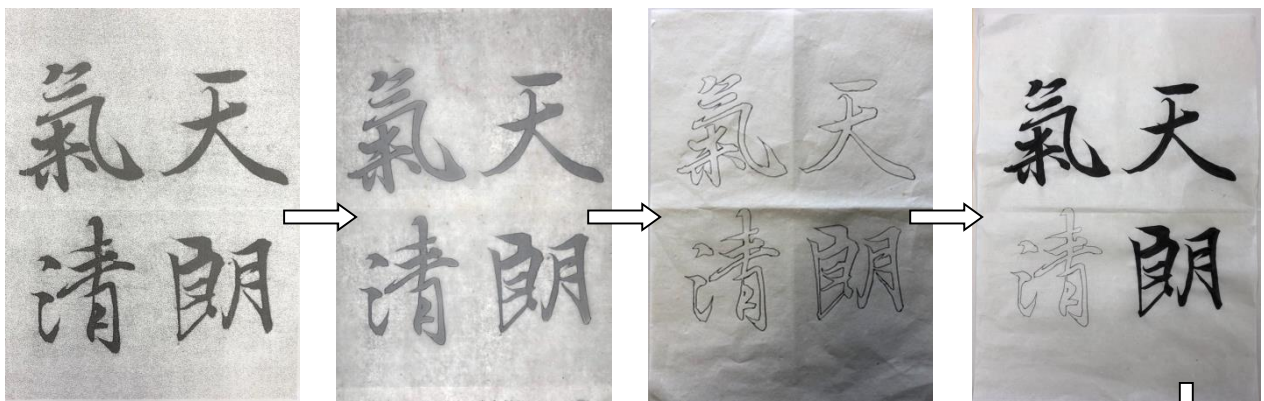 天朗
氣清
天朗
氣清
天朗
氣清
天朗
氣清